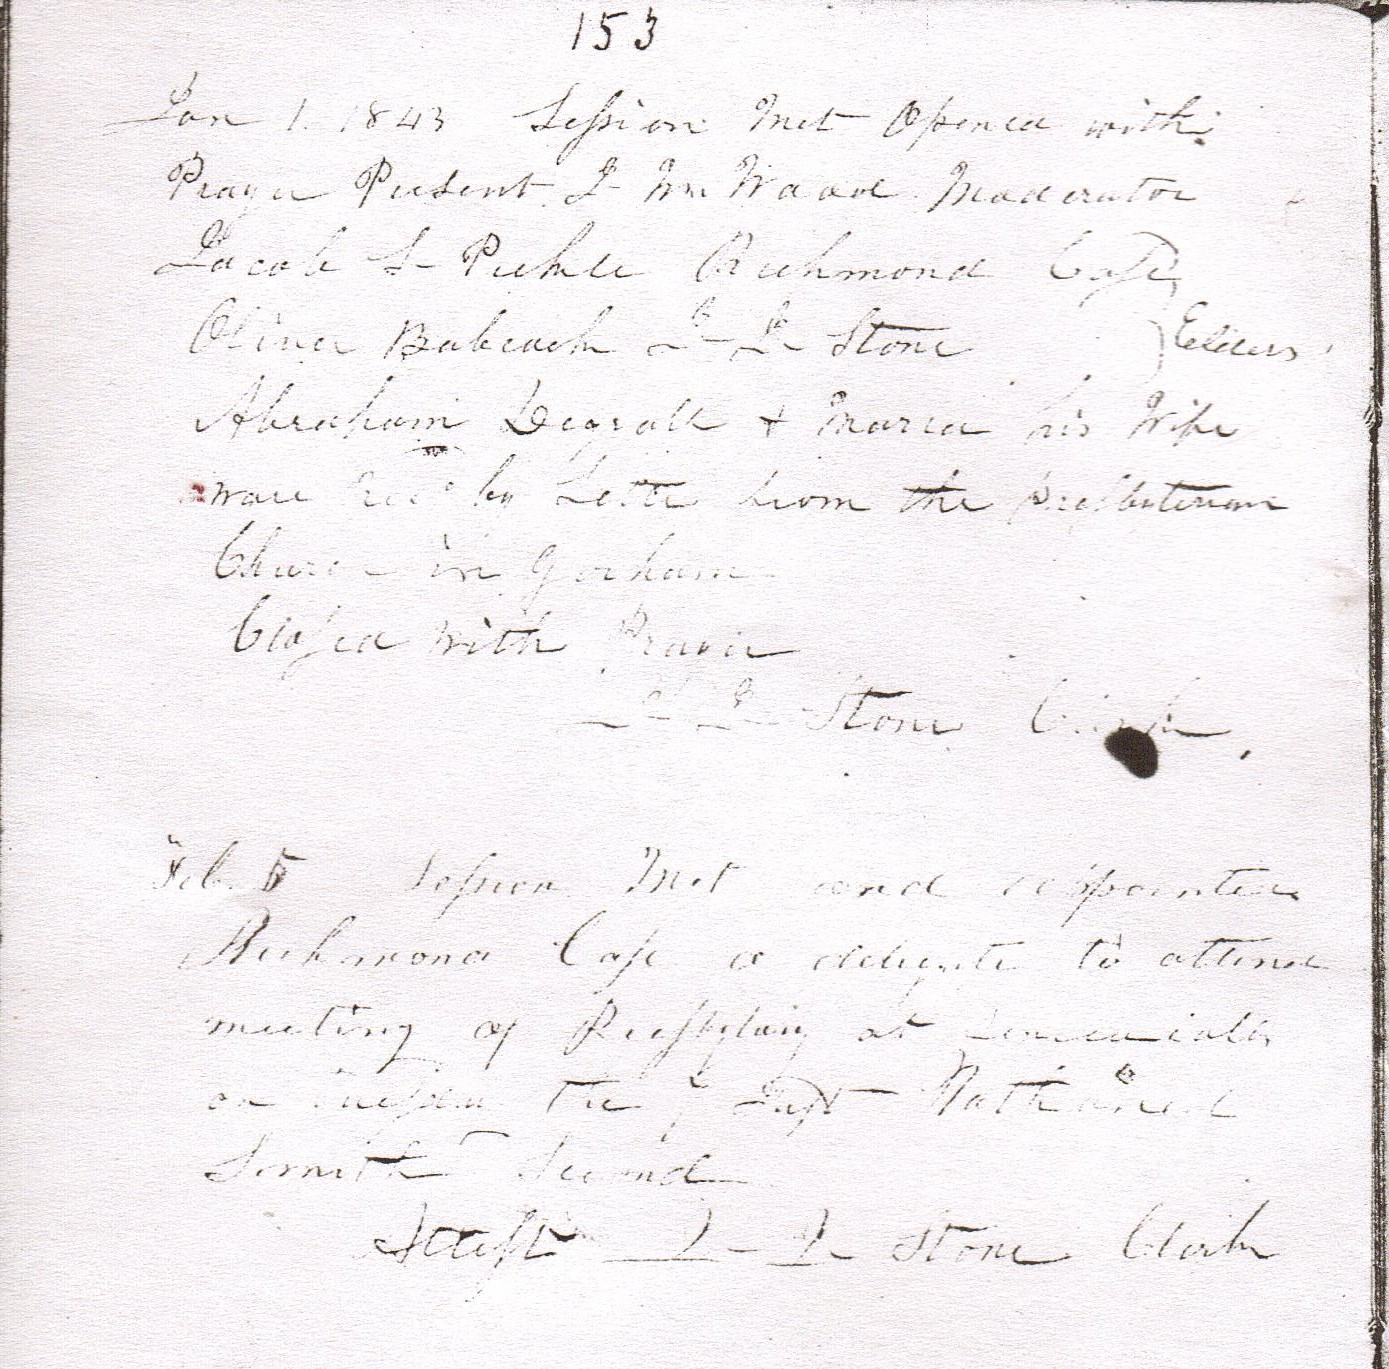 153
Jan 1. 1843 Session Met Opened with
Prayer Present J Wm Wood Moderator
Jacob S Pickle Richmond Case
Oliver Babcock J J Stone } Elders
Abraham Degraff + Maria his Wife
ware Recd by Letter from the Presbyterian
Church in Gorham
Closed with Prayer
J J Stone Clerk
Feb 5 Session Met and appointed
Richmond Case a delegate to attend
meeting of Presbytery at Seneca Falls
on the Nathaniel
Smith Second
Attest J J Stone Clerk